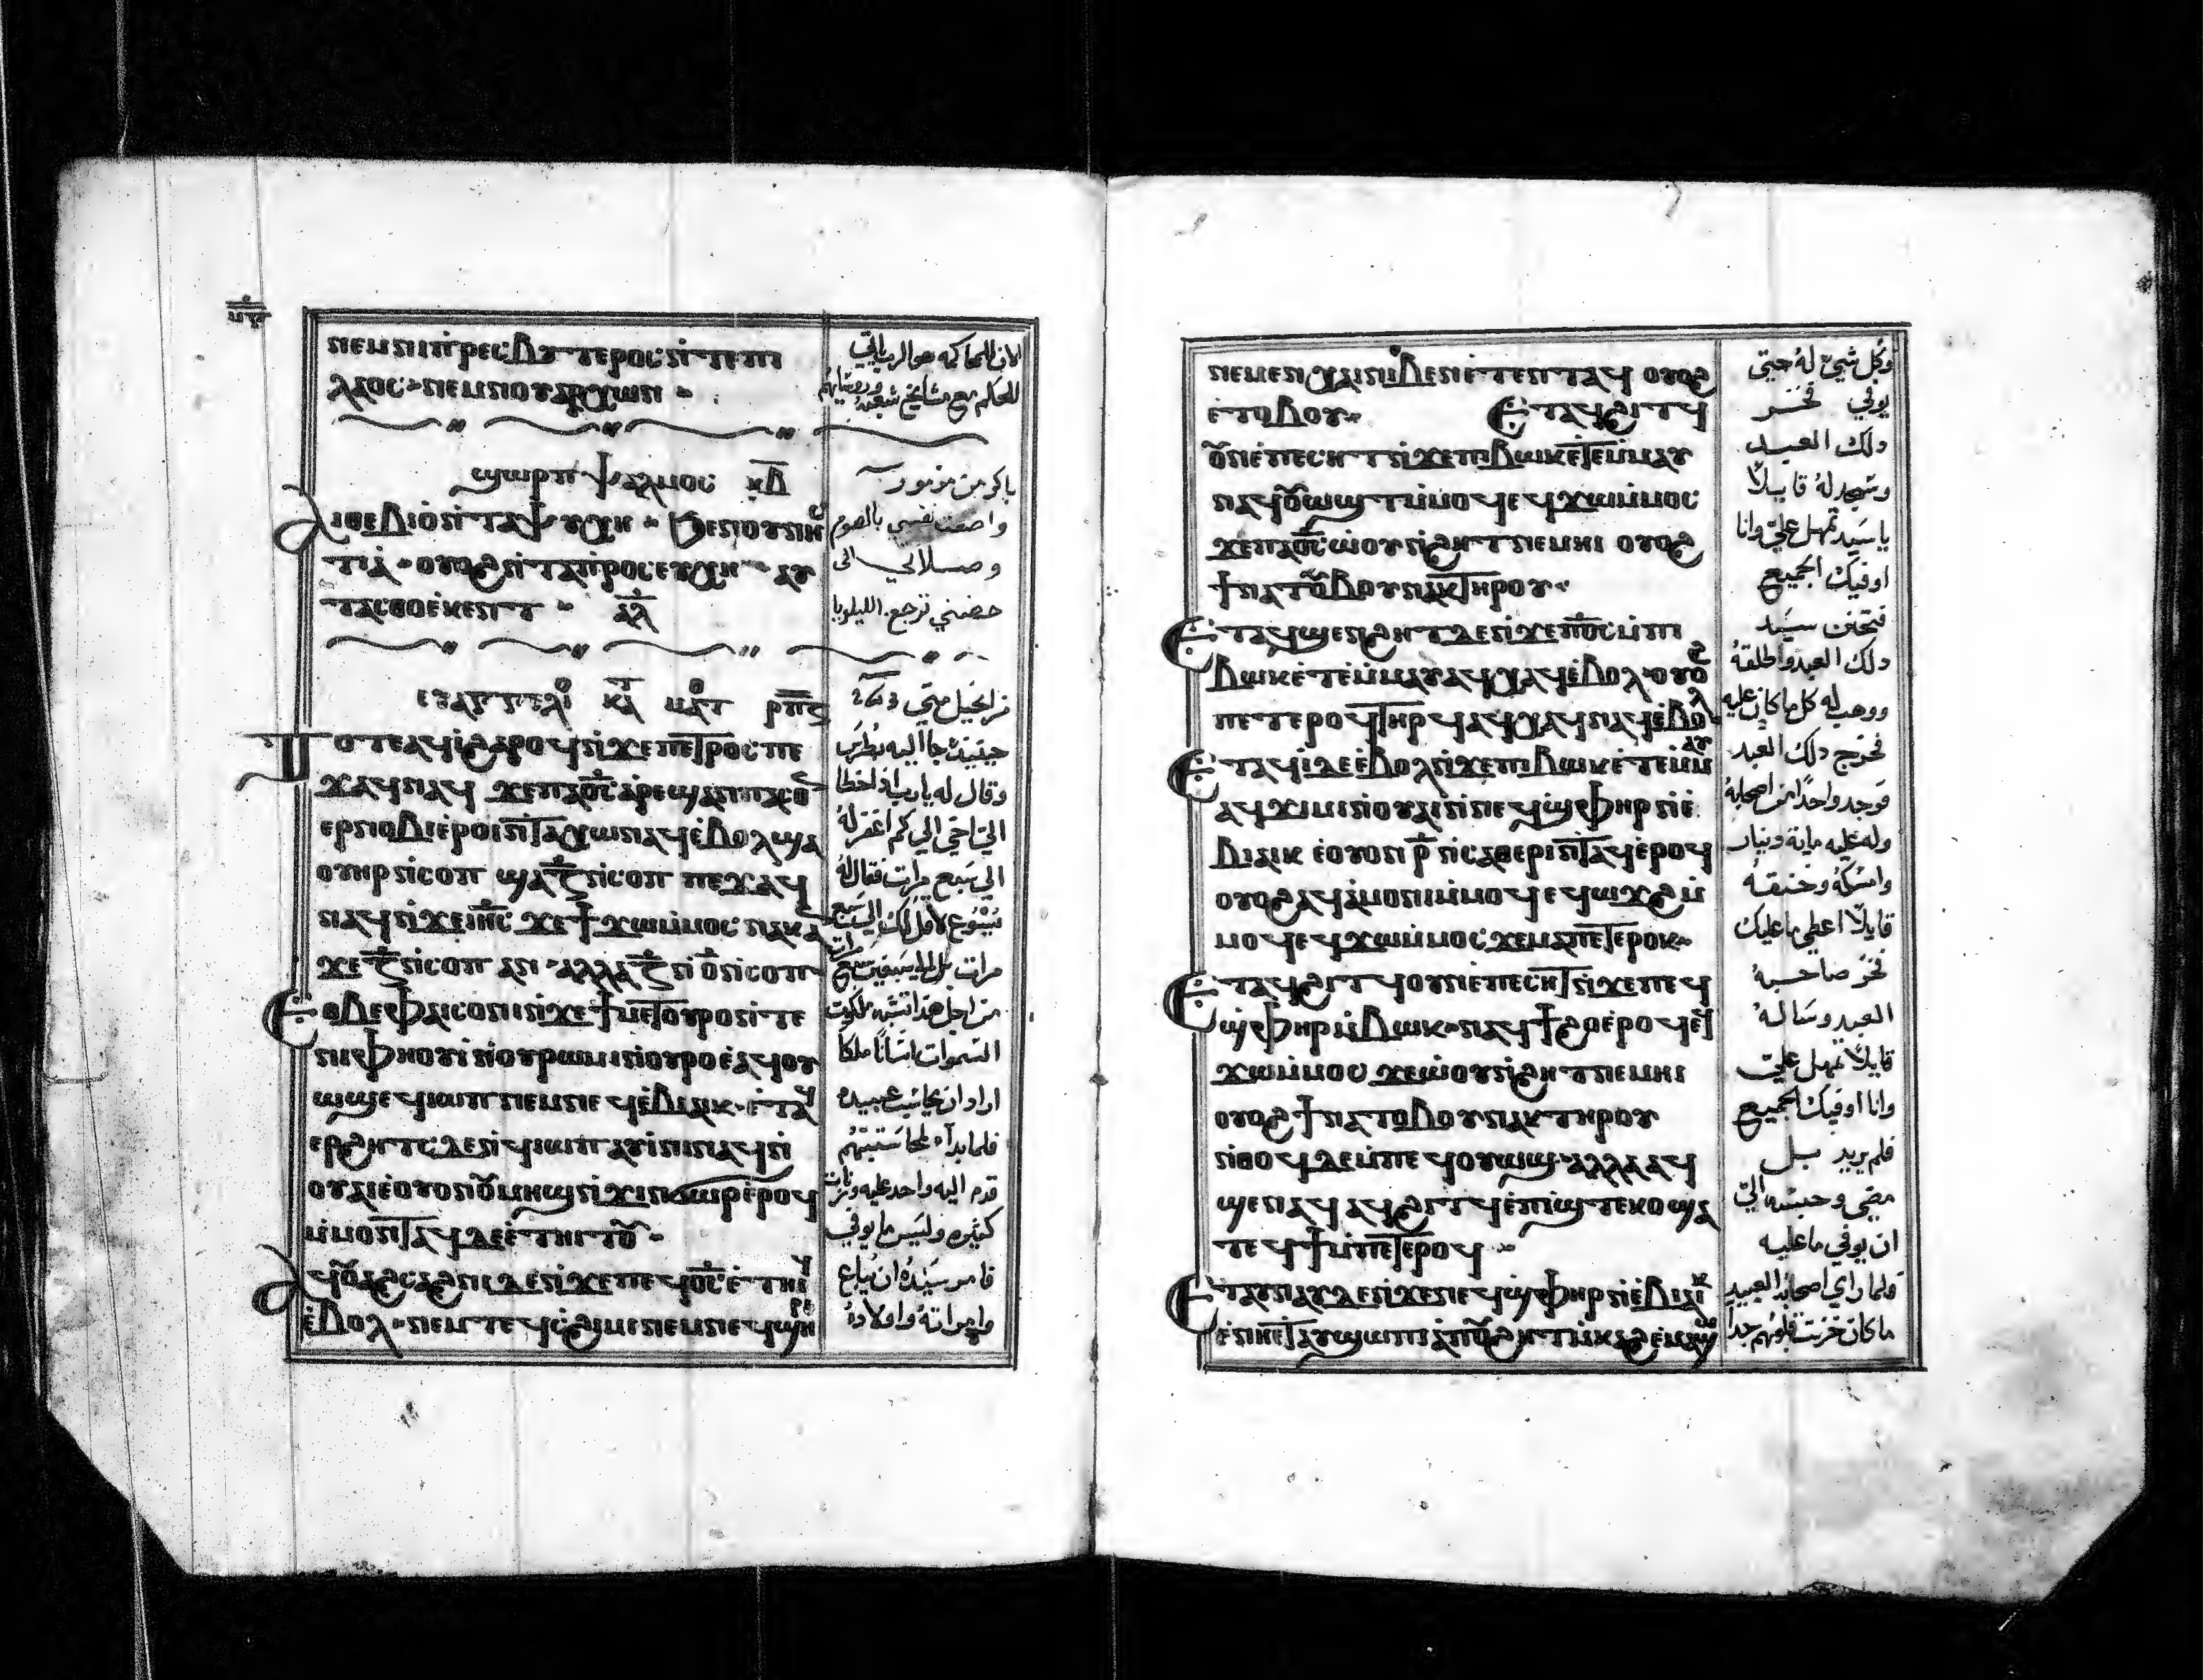 ⲛⲉⲙⲛⲓⲡⲣⲉⲥⲃⲩⲧⲉⲣⲟⲥ ⲛ̀ⲧⲉⲡⲓ
ⲗⲁⲟⲥ ⲛⲉⲙⲛⲓⲟⲩⲁⲣⲭⲱⲛ
ϣⲱⲣⲡ ⲯⲁⲗⲙⲟⲥ ⲕ̅ⲇ̅
ⲁⲓⲑⲉⲃⲓⲟ̀ⲛ̀ⲧⲁⲯⲩⲭⲏ ϧⲉⲛⲟⲩⲛⲏⲥ
ⲧⲓⲁ̀ ⲟⲩⲟϩⲛ̀ⲧⲁⲡ̀ⲣⲟⲥⲉⲩⲭⲏ ⲁⲩ
ⲧⲁⲥⲑⲟⲉ̀ⲕⲉⲛⲧ ⲁ̅ⲗ̅
ⲉⲩⲁⲅⲅⲉⲗⲓⲟ ⲕⲁⲧ ⲙⲁⲧ ⲣ̅ⲡ̅ⲋ̅
ⲧⲟⲧⲉⲁϥⲓ̀ϩⲁⲣⲟϥⲛ̀ϫⲉⲡⲉⲧⲣⲟⲥ ⲡⲉ
ϫⲁϥⲛⲁϥ ϫⲉⲡⲁⲟ̅ⲥ̅ ⲁⲣⲉϣⲁⲛⲡⲁⲥⲟⲛ
ⲉⲣⲛⲟⲃⲓⲉ̀ⲣⲟⲓⲛ̀ⲧⲁⲭⲱⲛⲁϥⲉ̀ⲃⲟⲗϣⲁ
ⲟⲩⲏⲣ ⲛ̀ⲥⲟⲡ ϣⲁⲍ̅ ⲛ̀ⲥⲟⲡ ⲡⲉϫⲁϥ
ⲛⲁϥⲛ̀ϫⲉⲓⲏ̅ⲥ̅ ϫⲉϯϫⲱⲙ̀ⲙⲟⲥ ⲛⲁⲕⲁⲛ
ϫⲉⲍ̅ ⲛ̀ⲥⲟⲡ ⲁⲛ ⲁⲗⲗⲁⲍ̅ ⲛ̀ⲟ̅ ⲛ̀ⲥⲟⲡ
ⲉⲑⲃⲉⲫⲁⲓⲥⲟⲛⲓⲛ̀ϫⲉϯⲙⲉⲧⲟⲩⲣⲟⲛ̀ⲧⲉ
ⲛⲓⲫⲏⲟⲩⲓ̀ ⲛ̀ⲟⲩⲣⲱⲙⲓⲛ̀ⲟⲩⲣⲟⲉ̀ⲁϥⲟⲩ
ⲱϣⲉϥⲓⲱⲡ ⲛⲉⲙⲛⲉϥⲉ̀ⲃⲓⲁⲓⲕ ⲉ̀ⲧⲁϥ
ⲉⲣϩⲏⲧⲥ ⲇⲉⲛ̀ϥⲓⲱⲡ ⲁⲩⲓ̀ⲛⲓⲛⲁϥⲛ̀
ⲟⲩⲁⲓⲉ̀ⲟⲩⲟⲛⲟⲩⲙⲏϣⲛ̀ϫⲓⲛϭⲱⲣⲉ̀ⲣⲟϥ
ⲙ̀ⲙⲟⲛⲧⲁϥ ⲇⲉⲉ̀ⲧⲏⲓⲧⲟⲩ
ⲁϥⲟⲩⲁϩⲥⲁϩⲛⲓ ⲇⲉⲛ̀ϫⲉⲡⲉϥⲟ̅ⲥ̅ ⲉ̀ⲧⲏⲓϥ
ⲉ̀ⲃⲟⲗ ⲛⲉⲙⲧⲉϥⲥ̀ϩⲓⲙⲓⲛⲉⲙⲛⲉϥϣⲏⲣⲓ
الان للمحاكمه هوالرب ياتي
للحكم مع مشايخ شعبه ورؤسايهم
باكر من مزمور
واضعت نفسي بالصوم
وصلاتي الى
حضني ترجع. الليلويا
من انجيل متي
حينيذ جا اليه بطرس
وقال له يارب اذا اخطا
الي اخي الي كم اغفر له
الي سبع مرات فقال له
يسوع لا اقل لك الي سبع مرات
مرات بل الي سبعين سبع
من اجل هذا تشبه ملكوت
السموات انسانا ملكا
اراد ان يحاسب عبيده
فلما بدا لمحاسبتهم
قدم اليه واحد عليه وزنات
كثيره وليس ما يوفي
فامر سيده ان يباع
وامراته واولاده
ⲛⲉⲙⲉⲛⲭⲁⲓⲛⲓⲃⲉⲛⲉ̀ⲧⲉⲛⲧⲁϥ ⲟⲩⲟϩ
ⲉ̀ⲧⲟⲃⲟⲩ ⲉⲧⲁϥϩⲓⲧϥ
ⲟⲩⲛⲉ̀ⲡⲉⲥⲏⲧ ⲛ̀ϫⲉⲡⲓⲃⲱⲕⲉ̀ⲧⲉⲙ̀ⲙⲁⲩ
ⲛⲁϥⲟⲩⲱϣⲧⲙ̀ⲙⲟϥⲉϥϫⲱⲙ̀ⲙⲟⲥ
ϫⲉⲡⲁⲟ̅ⲥ̅ ⲱ̀ⲟⲩⲛ̀ϩⲏⲧⲛⲉⲙⲏⲓ ⲟⲩⲟϩ
ϯⲛⲁⲧⲟⲃⲟⲩⲛⲁⲕⲧⲏⲣⲟⲩ
ⲉⲧⲁϥϣⲉⲛϩⲏⲧ ⲇⲉⲛ̀ϫⲉⲡⲟ̅ⲥ̅ ⲙ̀ⲡⲓ
ⲃⲱⲕⲉ̀ⲧⲉⲙ̀ⲙⲁⲩ ⲁϥⲭⲁϥⲉ̀ⲃⲟⲗ ⲟⲩⲟϩ
ⲡⲉⲧⲉⲣⲟϥⲧⲏⲣϥ ⲁϥⲭⲁϥⲛⲁϥⲉ̀ⲃⲟⲗ
ⲉⲧⲁϥⲓ̀ ⲇⲉⲉ̀ⲃⲟⲗⲛ̀ϫⲉⲡⲓⲃⲱⲕⲉ̀ⲧⲉⲙ̀ⲙⲁⲩ
ⲁϥϫⲓⲙⲓⲛ̀ⲟⲩⲁⲓⲛ̀ⲛⲉϥϣ̀ⲫⲏⲣⲛ̀ⲉ̀
ⲃⲓⲁⲓⲕ ⲉ̀ⲟⲩⲟⲛ ⲣ̅ ⲛ̀ⲥⲁⲑⲉⲣⲓⲛ̀ⲧⲁϥⲉ̀ⲣⲟϥ
ⲟⲩⲟϩⲁϥⲁ̀ⲙⲟⲛⲓⲙ̀ⲙⲟϥ ⲉϥⲱϫϩⲙ̀
ⲙⲟϥⲉϥϫⲱⲙ̀ⲙⲟⲥ ϫⲉⲙⲁⲡⲉⲧⲉⲣⲟⲕ
ⲉⲧⲁϥϩⲓⲧϥⲟⲩⲛⲉ̀ⲡⲉⲥⲏⲧⲛ̀ϫⲉⲡⲉϥ
ϣ̀ⲫⲏⲣⲙ̀ⲃⲱⲕ ⲛⲁϥϯϩⲟⲉ̀ⲣⲟϥⲉϥ
ϫⲱⲙ̀ⲙⲟⲥ ϫⲉⲱ̀ⲟⲩⲛ̀ϩⲏⲧⲛⲉⲙⲏⲓ
ⲟⲩⲟϩϯⲛⲁⲧⲟⲃⲟⲩⲛⲁⲕⲧⲏⲣⲟⲩ
ⲛ̀ⲑⲟϥ ⲇⲉⲙ̀ⲡⲉϥⲟⲩⲱϣ ⲁⲗⲗⲁⲁϥ
ϣⲉⲛⲁϥ ⲁϥϩⲓⲧϥⲉ̀ⲡⲓϣ̀ⲧⲉⲕⲟϣⲁ
ⲧⲉϥϯⲙ̀ⲡⲉⲧⲉⲣⲟϥ
ⲉⲧⲁⲩⲛⲁⲩ ⲇⲉⲛ̀ϫⲉⲛⲉϥϣ̀ⲫⲏⲣⲛ̀ⲉ̀ⲃⲓⲁⲓⲕ
ⲉ̀ⲛⲏⲉ̀ⲧⲁⲩϣⲱⲡⲓ ⲁ̀ⲡⲟⲩϩⲏⲧⲙ̀ⲕⲁϩⲉ̀ⲙⲁϣⲱ
وكل شيئ له حتي
يوفي فخر
دلك العبد
وسجد له قايلا
ياسيد تمهل علي وانا
اوفيك الجميع
فتحنن سيد
دلك العبد واطلقه
ووهب له كل ما كان عليه
فخرج دلك العبد
فوجد واحدا من اصحابه
وله عليه ماية دينار
وامسكه وخنقه
قايلا اعطي ما عليك
فخر صاحبه
العبد وساله
قايلا تمهل علي
وانا اوفيك الجميع
فلم يريد بل
مضي وحبسه الي
ان يوفي ما عليه
فلما راي اصحابه العبيد
ما كان حزنت قلوبهم جدا